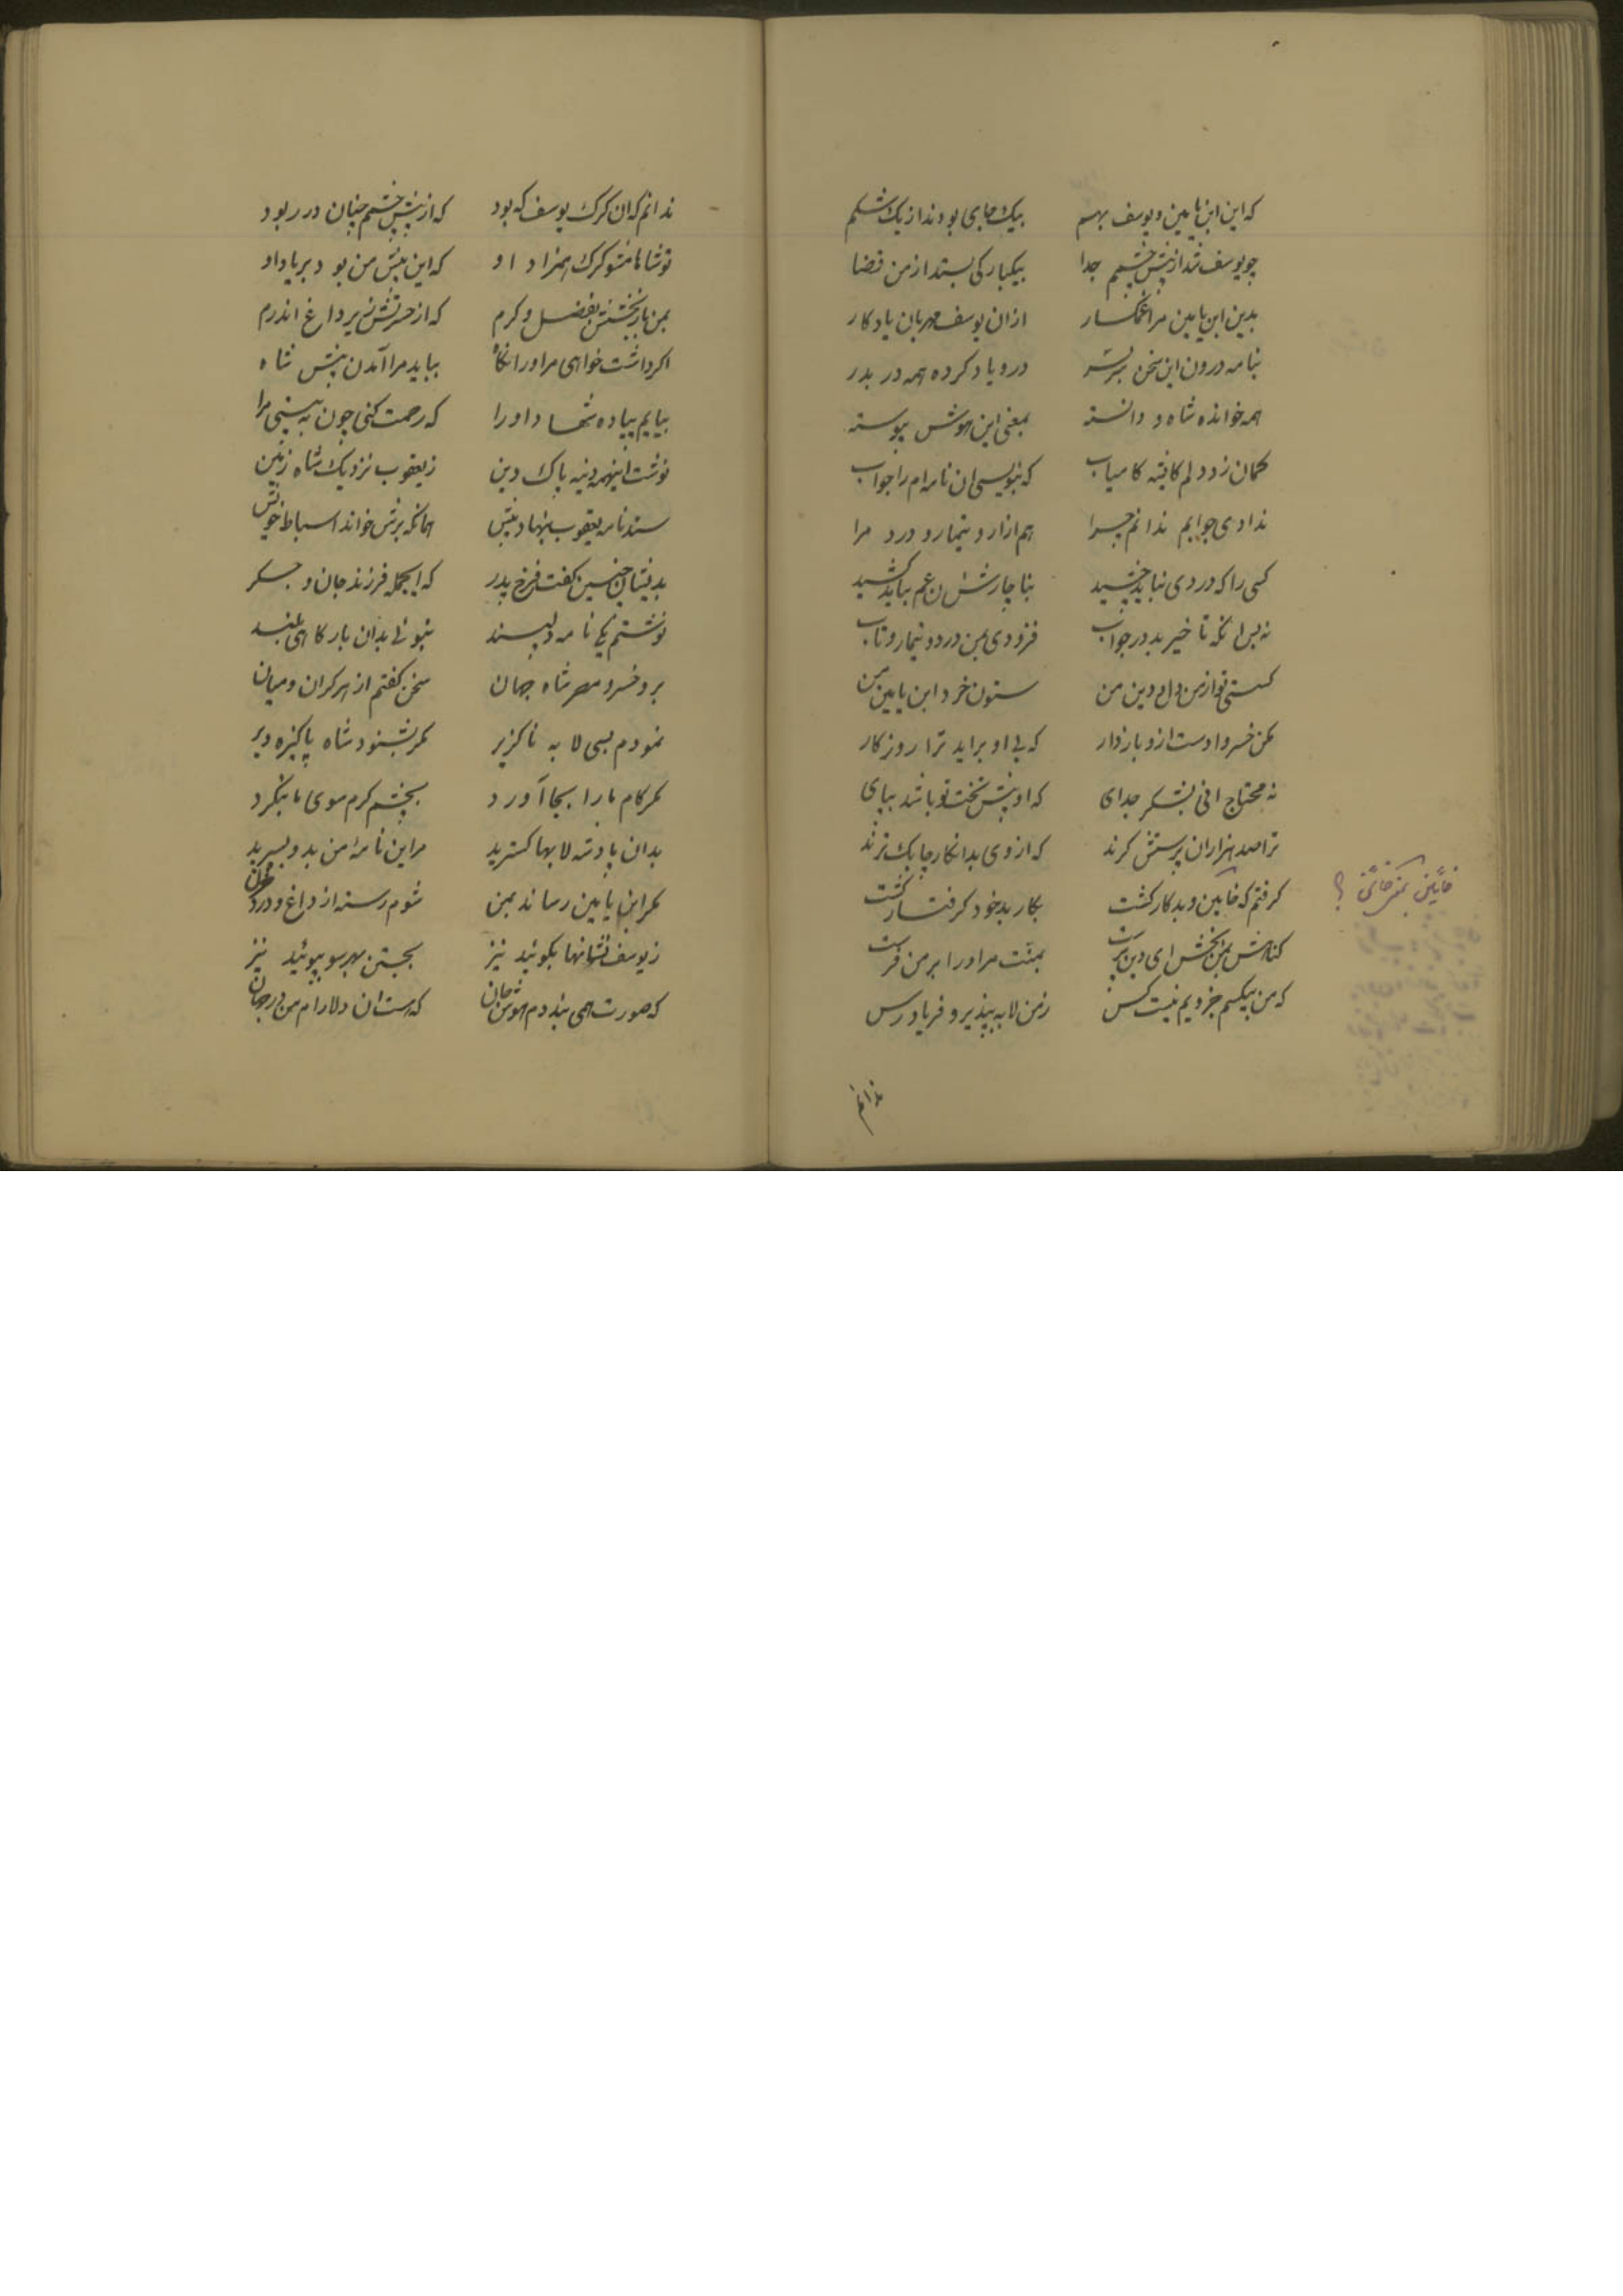 که این ابن یامین و یوسف بهم بیک جای بودند از یک شکم
چو یوسف شد از پیش چشمم جدا بیکبارکی بستد از من قضا
بدین ابن یامین مرا غمکسار ازان یوسف مهربان یادکار
بنامه درون این سخن سربسر درو یاد کرده همه در بدر
همه خوانده شاه و دانسته بمعنی این هوش پیوسته
کمان زد دلم کافیه کامیاب که بنویسی ان نامه ام را جواب
ندادی جوابم ندانم چرا هم ازار و تیمار و درد مرا
کسی را که دردی نباید چشید بناچارش ان غم بباید کشید
نه بس انکه تاخیر بد در جواب فزودی بمن درد و تیمار و تاب
کسستی تو از من دل و دین من ستون خرد ابن یامین من
مکن خسروا دست ازو باز دار که بی او براید ترا روزکار
نه محتاج انی بشکر جدای که او پیش تخت تو باشد بپای
ترا صد هزاران پرستش کرند که از وی بدانکار چابک ترند
کرفتم که خایین و بدکار کشت بکار بد خود کرفتار کشت
کناهش بمن بخش ای دین پرست بمنت مر او را بر من فرست
که من بیکسم جز ویم نیست کس ز من لابه بپذیر و فریاد رس
خایین بمعنی خائن ؟
ندانم
ندانم که ان کرک یوسف که بود که از پیش چشمم چنان در ربود
تو شاها مشو کرک همزاد او که این پیش من بود بر یاد او
بمن باز بخشش بفضل و کرم که از حسرتش زیر داغ اندرم
اکر داشت خواهی مر او را نکاه بباید مرا آمدن پیش شاه
بیایم پیاده شها داورا که رحمت کنی چون ببینی مرا
نوشت اینهمه دنیه پاک دین ز یعقوب نزدیک شاه زمین
ستد نامه یعقوب بنهاد پیش همانکه برش خواند اسباط خویش
بدیشان چنین کفت فرخ پدر که ایجمله فرزند جان و جکر
نوشتم یکی نامه دلپسند بنوئی بدان بارکاهی بلند
بر خسرو مصر شاه جهان سخن کفتم از هر کران و میان
نمودم بسی لابه ناکزیر مکر بشنود شاه پاکیزه ویر
مکر کام ما را بجا آورد بچشم کرم سوی ما بنکرد
بدان پادشه لابها کسترید مر این نامه من بدو بسپرید
مکر ابن یامین رساند بمن شوم رسته از داغ و درد و محن
ز یوسف نشانها بکوئید نیز بجستن بهر سو بپوئید نیز
که صورت همی بنددم هوش و جان که هست ان دلارام من در جهان